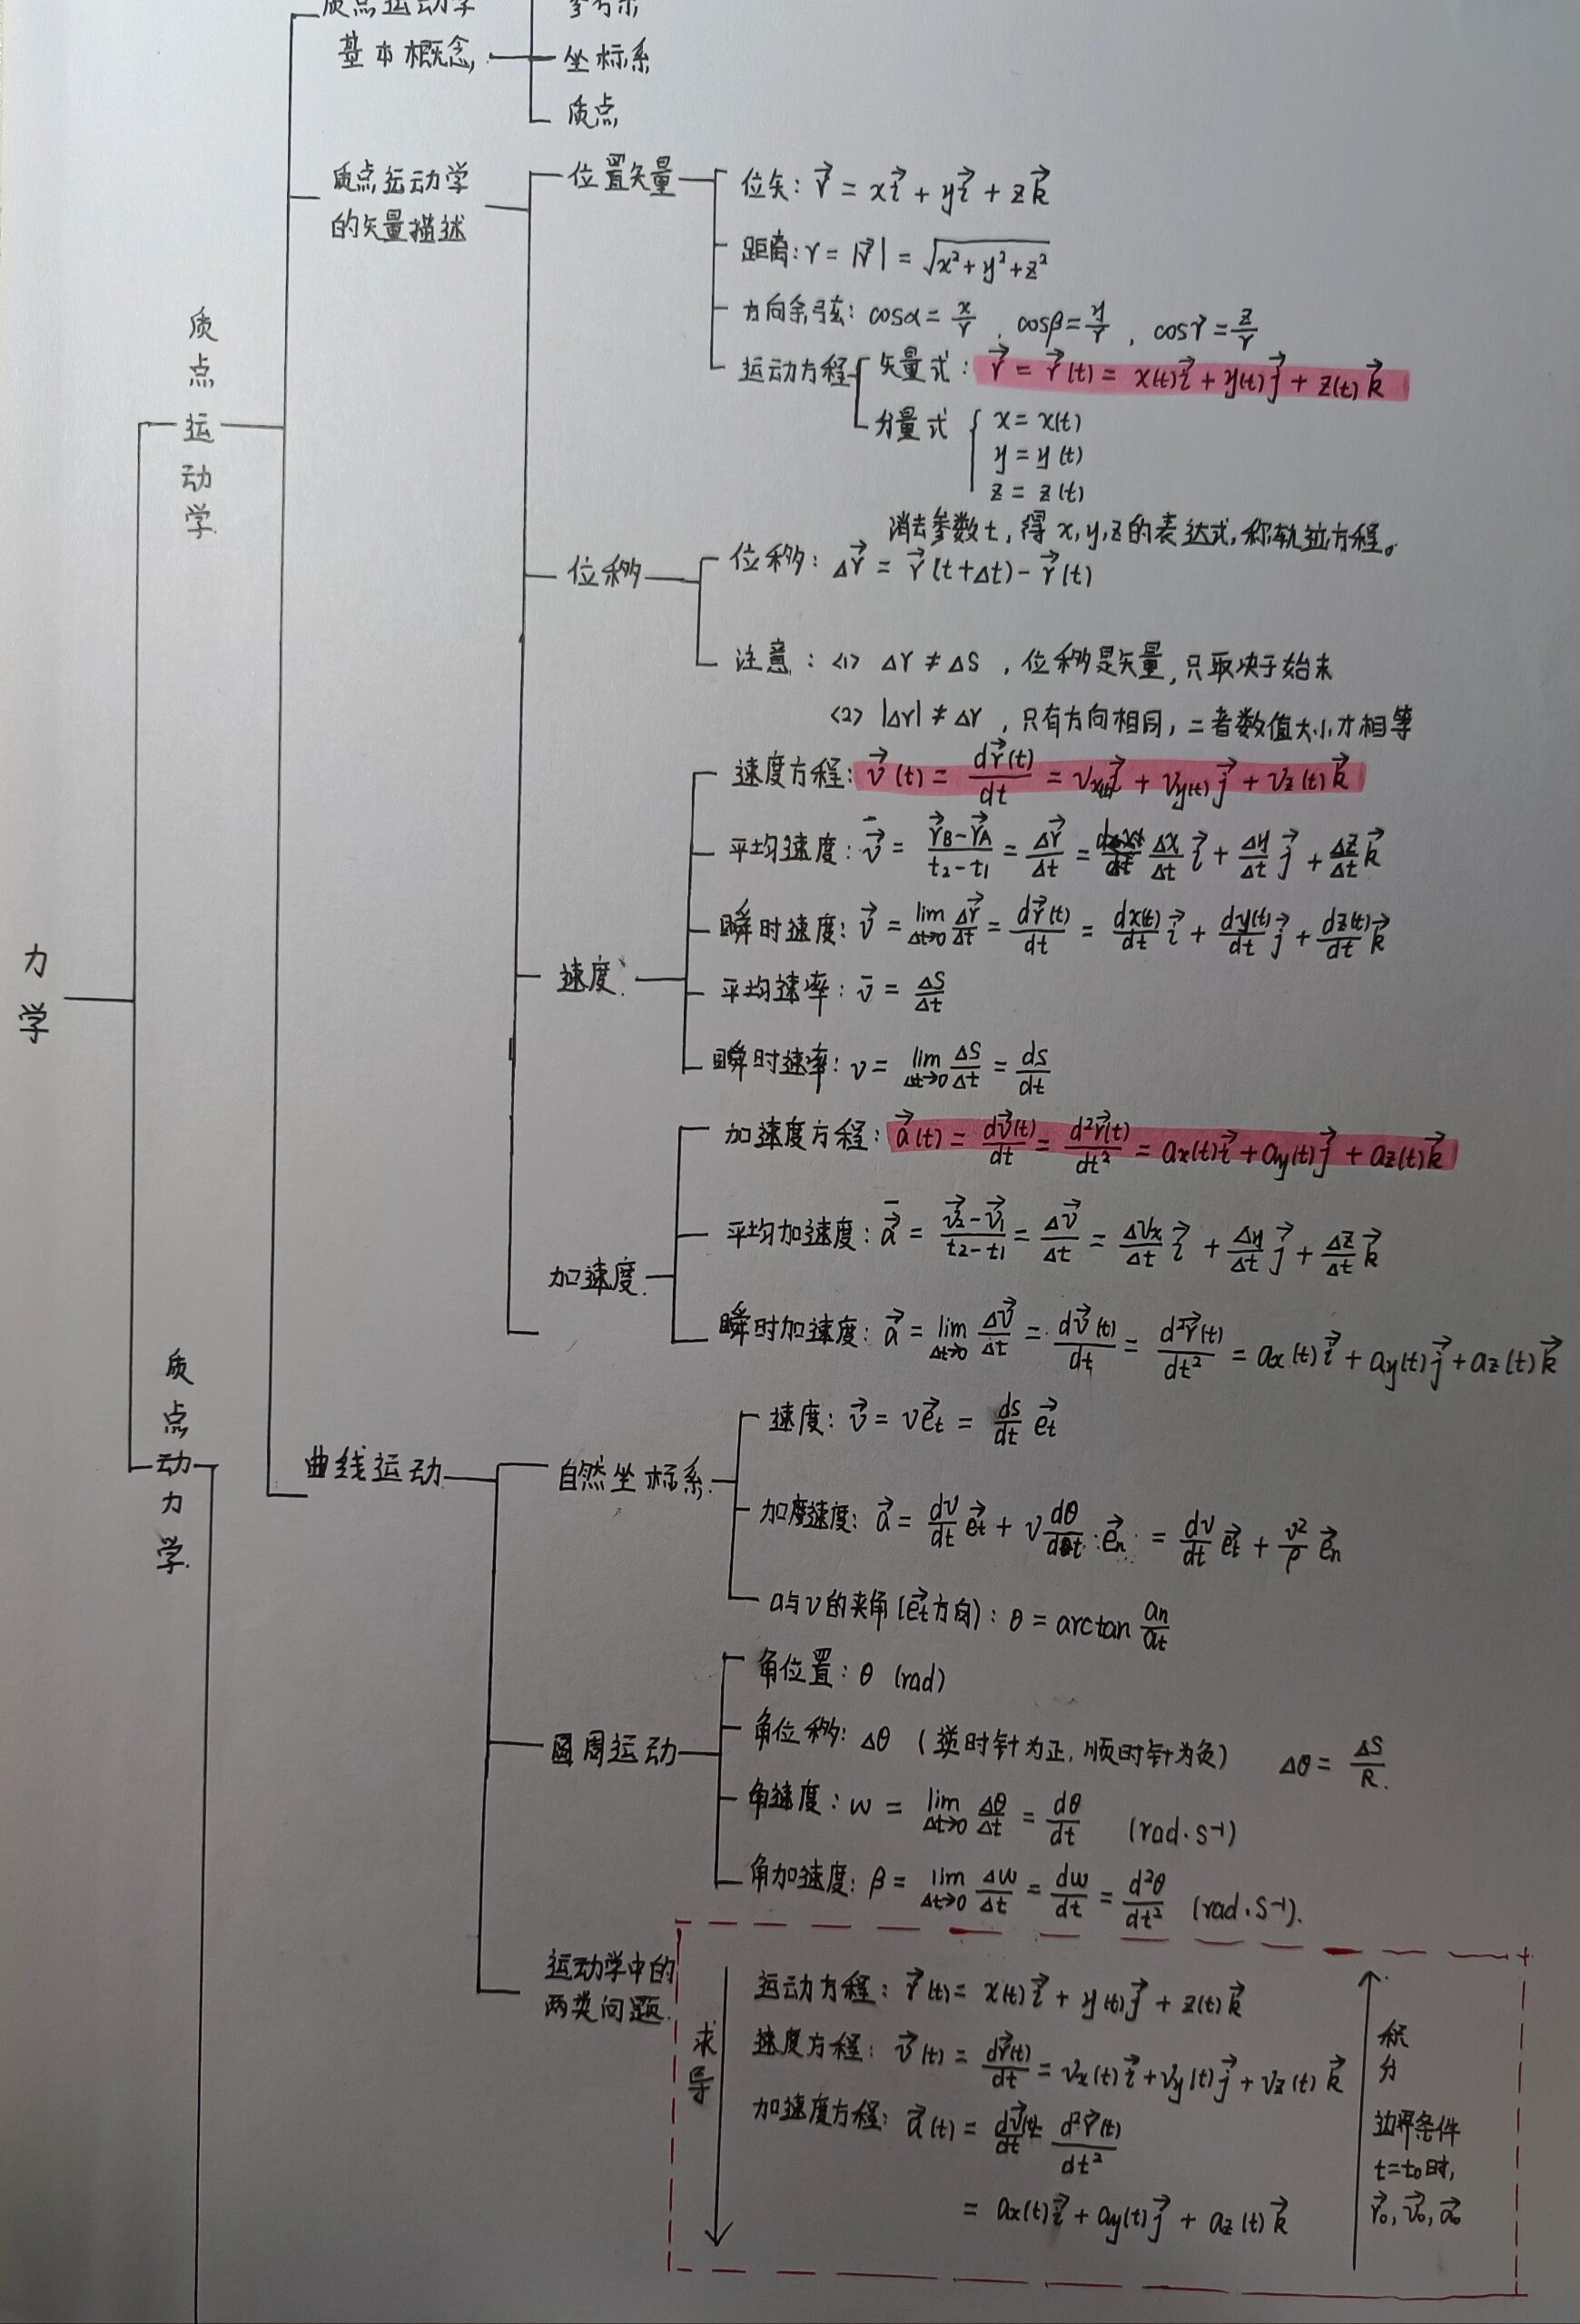 质点运动学
基本概念
参考系
坐标系
质点
质点运动学
的矢量描述
位置矢量
位矢: r⃗ = xi⃗ + yi⃗ + zk⃗
距离: r = |r⃗| = √(x²+y²+z²)
方向余弦: cosα = x/r , cosβ = y/r , cosγ = z/r
运动方程
矢量式: r⃗ = r⃗(t) = x(t)i⃗ + y(t)j⃗ + z(t)k⃗
分量式 { x = x(t)
y = y(t)
z = z(t)
消去参数t, 得x,y,z的表达式,称轨迹方程。
位移
位移: Δr⃗ = r⃗(t+Δt) - r⃗(t)
注意: <1> Δr ≠ ΔS , 位移是矢量, 只取决于始末
<2> |Δr| ≠ Δr , 只有方向相同, 二者数值大小才相等
速度
速度方程: v⃗(t) = dr⃗(t)/dt = vx(t)i⃗ + vy(t)j⃗ + vz(t)k⃗
平均速度: v̄⃗ = (r⃗B-r⃗A)/(t₂-t₁) = Δr⃗/Δt = Δx/Δt i⃗ + Δy/Δt j⃗ + Δz/Δt k⃗
瞬时速度: v⃗ = lim Δt→0 Δr⃗/Δt = dr⃗(t)/dt = dx(t)/dt i⃗ + dy(t)/dt j⃗ + dz(t)/dt k⃗
平均速率: v̄ = ΔS/Δt
瞬时速率: v = lim Δt→0 ΔS/Δt = ds/dt
加速度
加速度方程: a⃗(t) = dv⃗(t)/dt = d²r⃗(t)/dt² = ax(t)i⃗ + ay(t)j⃗ + az(t)k⃗
平均加速度: ā⃗ = (v⃗₂-v⃗₁)/(t₂-t₁) = Δv⃗/Δt = Δvx/Δt i⃗ + Δy/Δt j⃗ + Δz/Δt k⃗
瞬时加速度: a⃗ = lim Δt→0 Δv⃗/Δt = dv⃗(t)/dt = d²r⃗(t)/dt² = ax(t)i⃗ + ay(t)j⃗ + az(t)k⃗
质点运动学
力学
质点动力学
曲线运动
自然坐标系
速度: v⃗ = ve⃗t = ds/dt e⃗t
加度速度: a⃗ = dv/dt e⃗t + v dθ/dt e⃗n = dv/dt e⃗t + v²/ρ e⃗n
a与v的夹角(e⃗t方向): θ = arctan an/at
圆周运动
角位置: θ (rad)
角位移: Δθ (逆时针为正, 顺时针为负) Δθ = ΔS/R.
角速度: ω = lim Δt→0 Δθ/Δt = dθ/dt (rad·s⁻¹)
角加速度: β = lim Δt→0 Δω/Δt = dω/dt = d²θ/dt² (rad·S⁻¹).
运动学中的
两类问题
求导
运动方程: r⃗(t) = x(t)i⃗ + y(t)j⃗ + z(t)k⃗
速度方程: v⃗(t) = dr⃗(t)/dt = vx(t)i⃗ + vy(t)j⃗ + vz(t)k⃗
加速度方程: a⃗(t) = dv⃗(t)/dt = d²r⃗(t)/dt²
= ax(t)i⃗ + ay(t)j⃗ + az(t)k⃗
积分
边界条件
t=t₀时,
r⃗₀, v⃗₀, a⃗₀